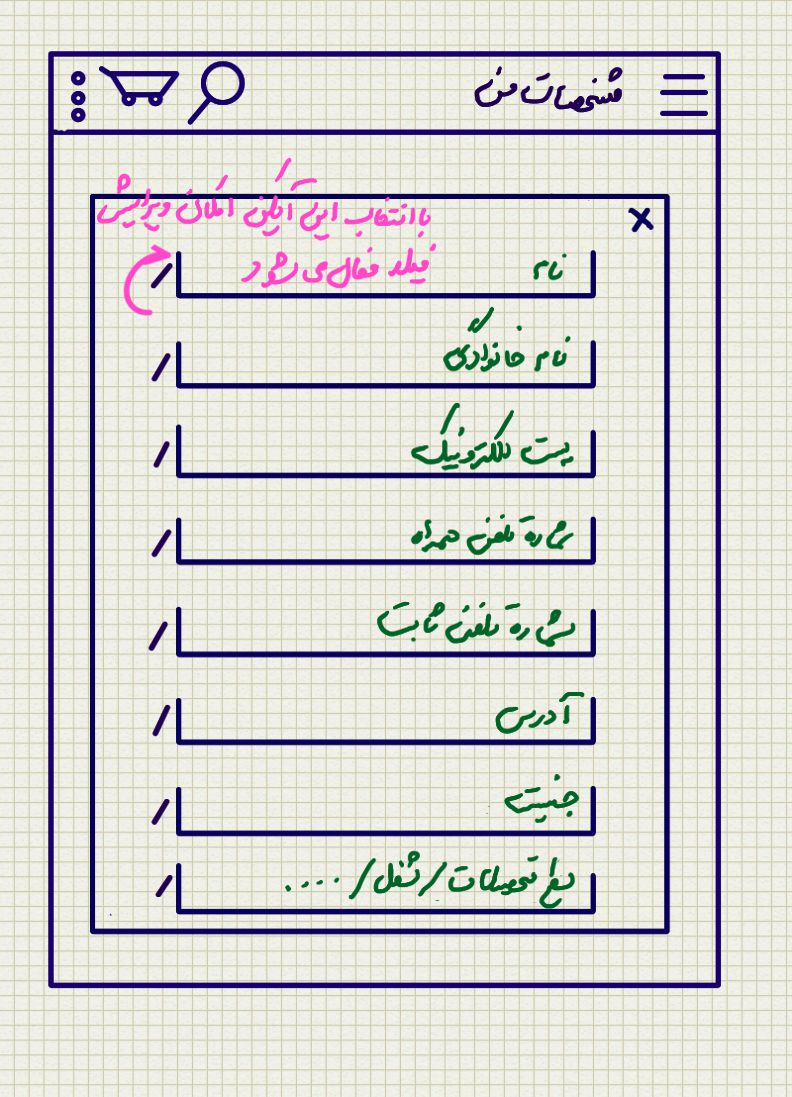 مشخصات من
با انتخاب این آیکن امکان ویرایش
فیلد فعال می شود
نام
نام خانوادگی
پست الکترونیک
شماره تلفن همراه
شماره تلفن ثابت
آدرس
جنسیت
سطح تحصیلات / شغل / ....